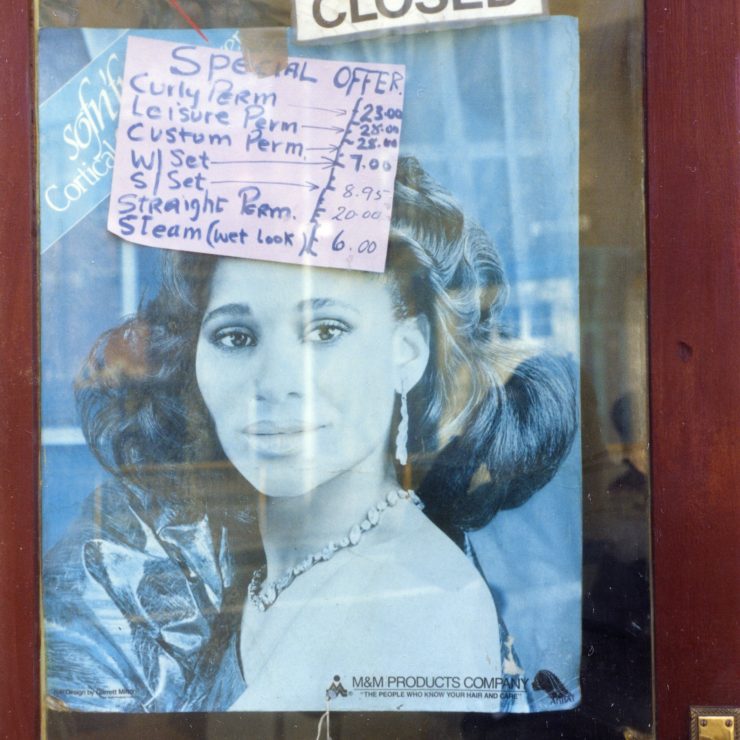 CLOSED
SPECIAL OFFER.
Curly Perm £23.00
Leisure Perm £28.00
Custum Perm £28.00
W/Set £7.00
S/Set £8.95
Straight Perm. £20.00
Steam (wet look) £6.00
sofn'f
Cortical
Hair Design by Garrett Mitto
M&M PRODUCTS COMPANY
"THE PEOPLE WHO KNOW YOUR HAIR AND CARE"